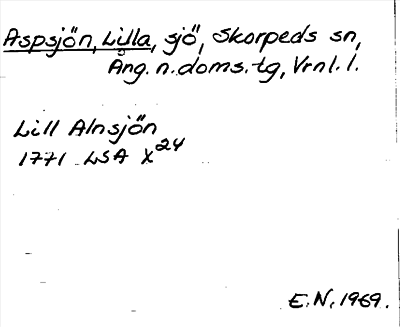 Aspsjön, Lilla, sjö, Skorpeds sn,
Ång. n. doms. tg, Vrnl. l.
Lill Alnsjön
1771 LSA X24
E. N. 1969.